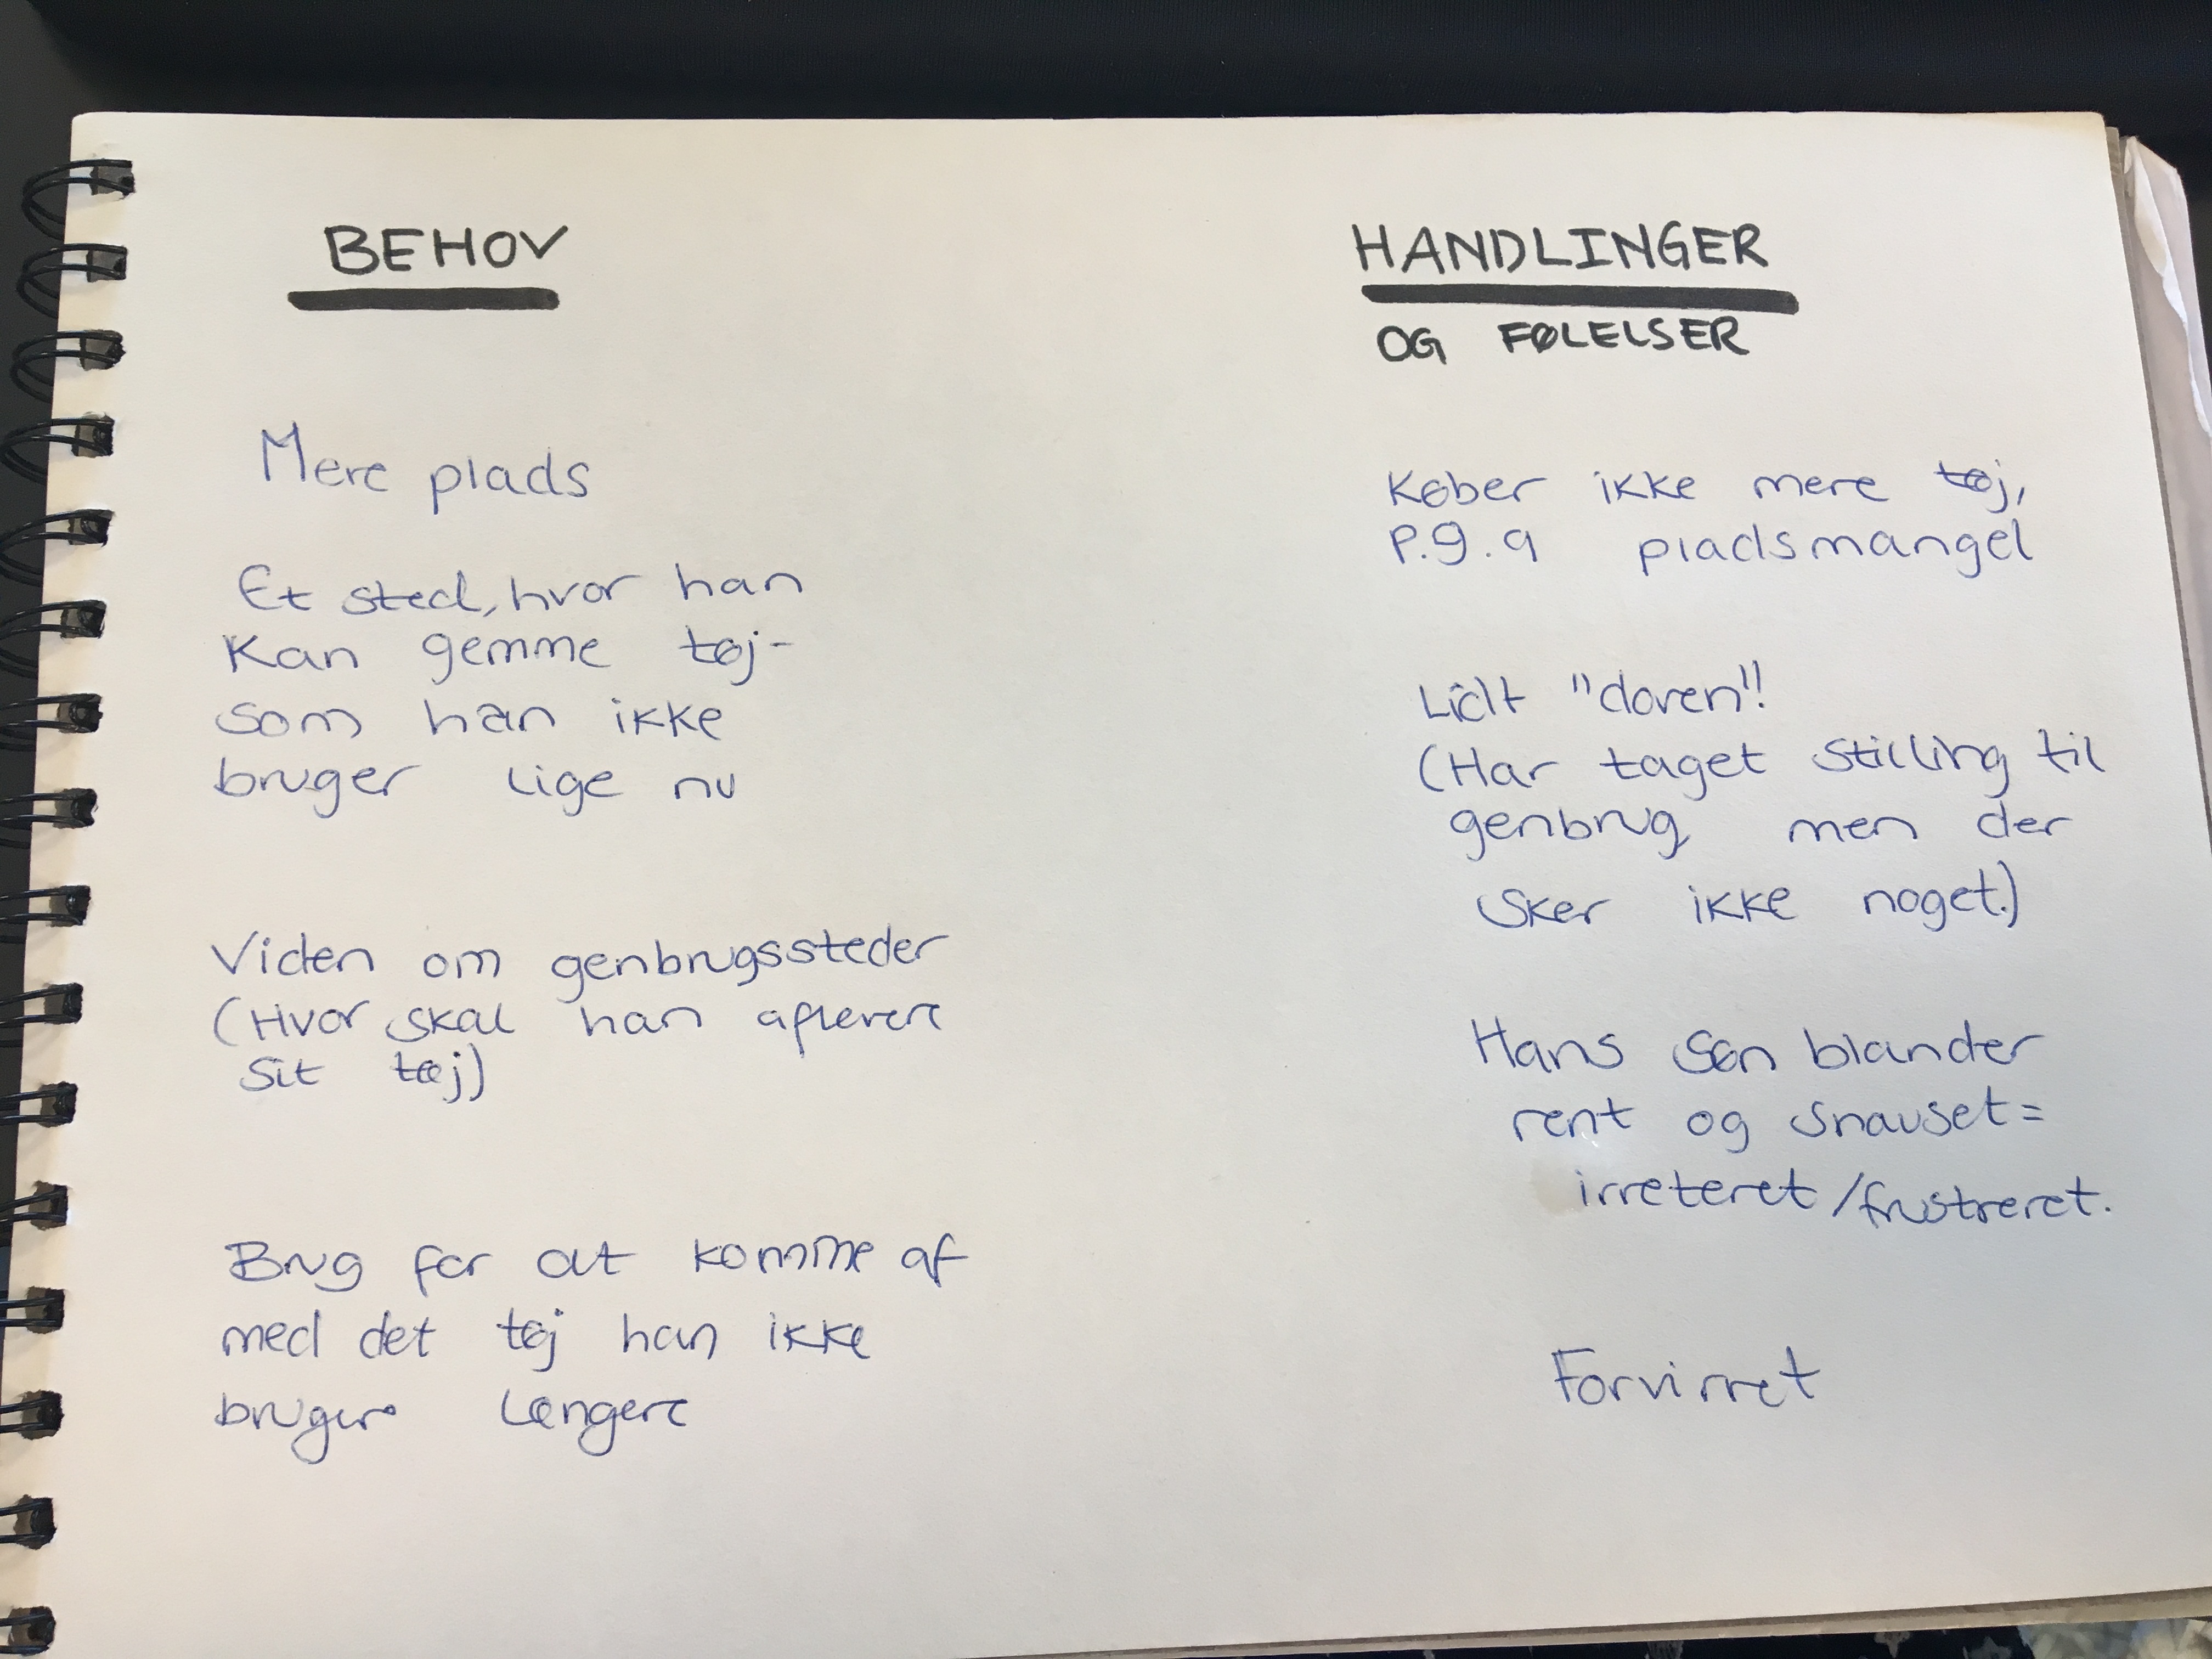 BEHOV
Mere plads
Et sted, hvor han
kan gemme tøj-
som han ikke
bruger lige nu
Viden om genbrugssteder
(Hvor skal han aflevere
sit tøj)
Brug for at komme af
med det tøj han ikke
bruger længere
HANDLINGER
OG FØLELSER
Køber ikke mere tøj,
p.g.a pladsmangel
Lidt "doven!!
(Har taget stilling til
genbrug, men der
sker ikke noget)
Hans søn blander
rent og snavset =
irreteret/frustreret.
Forvirret